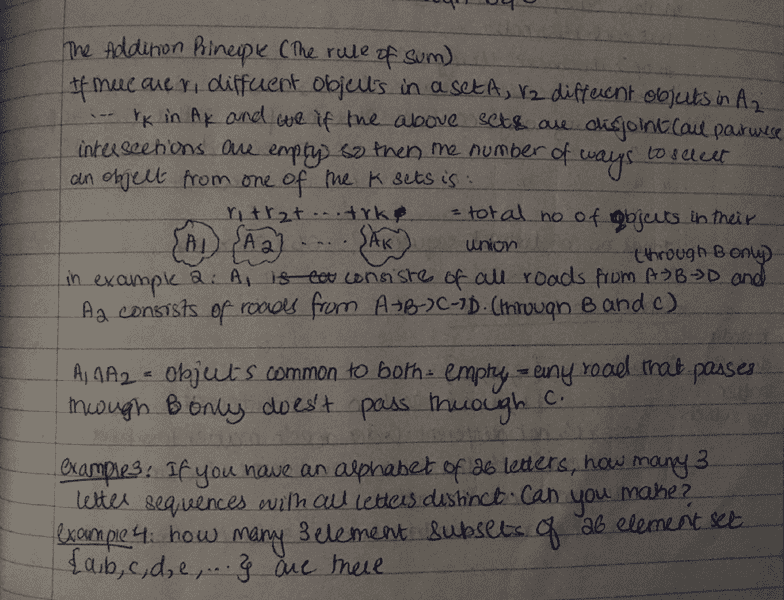 The Addition Principle (The rule of sum)
If there are r₁ different objects in a set A, r₂ different objects in A₂
... rₖ in Aₖ and we if the above sets are disjoint (all pairwise
intersections are empty) so then the number of ways to select
an object from one of the K sets is:
r₁+r₂+ ... +rₖ = total no of objects in their
{A₁} {A₂} .... {Aₖ} union (through B only)
in example 2: A₁ consists of all roads from A→B→D and
A₂ consists of roads from A→B→C→D. (through B and C)
A₁∩A₂ = objects common to both = empty = any road that passes
through B only does't pass through C.
Example3: If you have an alphabet of 26 letters, how many 3
letter sequences with all letters distinct. Can you make?
Example 4: how many 3 element subsets of 26 element set
{a,b,c,d,e,...} are there